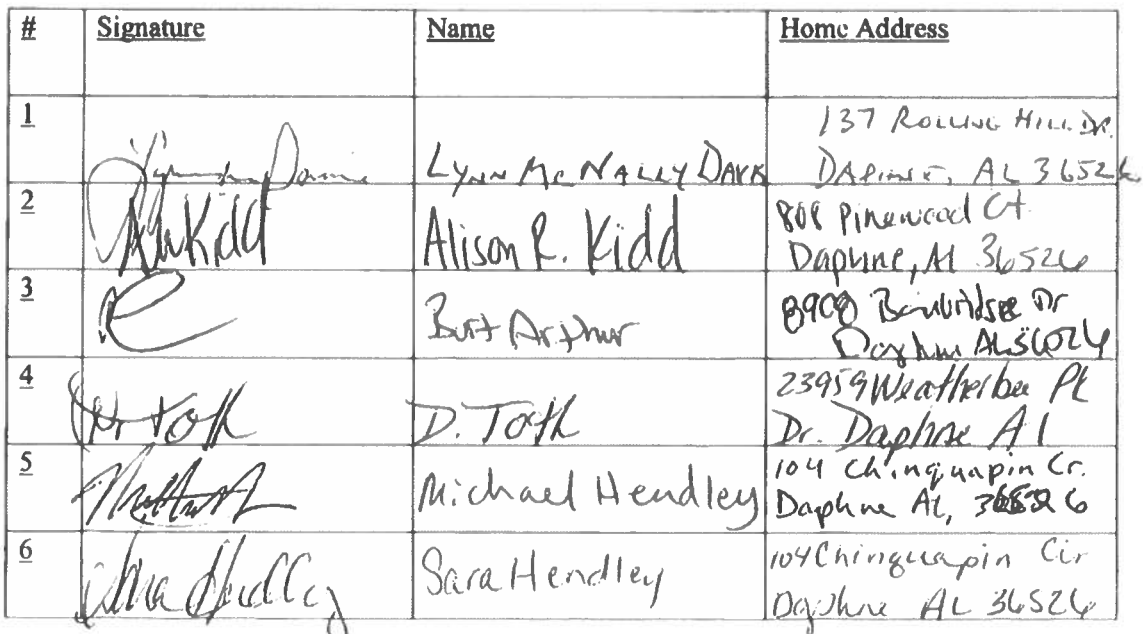 # Signature Name Home Address
1 137 ROLLING HILL DR.
LYNN MCNALLY DAVIS DAPHNE, AL 36526
2 AWKidd Alison R. Kidd 808 Pinewood Ct
Daphne, Al 36526
3 Burt Arthur 8908 Bainbridge Dr
Daphne AL 36526
4 Toth D. Toth 23959 Weatherbee Pk
Dr. Daphne Al
5 Michael Hendley 104 Chinquapin Cr.
Daphne AL, 36526
6 Sara Hendley Sara Hendley 104 Chinquapin Cir
Daphne AL 36526